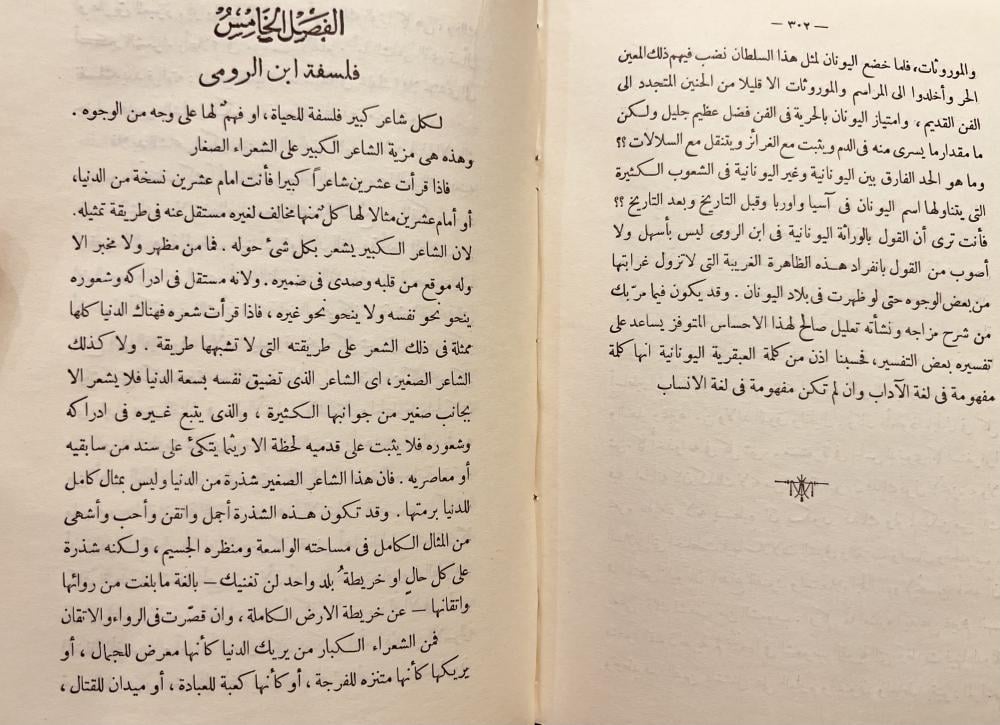 — ٣٠٢ —
والموروثات، فلما خضع اليونان لمثل هذا السلطان نضب فيهم ذلك المعين
الحر وأخلدوا الى المراسم والموروثات الا قليلا من الحنين المتجدد الى
الفن القديم، وامتياز اليونان بالحرية فى الفن فضل عظيم جليل ولكن
ما مقدار ما يسرى منه فى الدم ويثبت مع الغرائز ويتنقل مع السلالات ؟؟
وما هو الحد الفارق بين اليونانية وغير اليونانية فى الشعوب الكثيرة
التى يتناولها اسم اليونان فى آسيا واوربا وقبل التاريخ وبعد التاريخ ؟؟
فأنت ترى أن القول بالوراثة اليونانية فى ابن الرومى ليس بأسهل ولا
أصوب من القول بانفراد هذه الظاهرة الغريبة التى لاتزول غرابتها
من بعض الوجوه حتى لو ظهرت فى بلاد اليونان . وقد يكون فيما مرّ بك
من شرح مزاجه ونشأته تعليل صالح لهذا الاحساس المتوفز يساعد على
تفسيره بعض التفسير، فحسبنا اذن من كلمة العبقرية اليونانية انها كلمة
مفهومة فى لغة الآداب وان لم تكن مفهومة فى لغة الانساب
الفصل الخامس
فلسفة ابن الرومى
لكل شاعر كبير فلسفة للحياة، او فهمٌ لها على وجه من الوجوه .
وهذه هى مزية الشاعر الكبير على الشعراء الصغار
فاذا قرأت عشرين شاعراً كبيرا فأنت امام عشرين نسخة من الدنيا،
أو أمام عشرين مثالا لها كلٌ منها مخالف لغيره مستقل عنه فى طريقة تمثيله.
لان الشاعر الكبير يشعر بكل شئ حوله . فما من مظهر ولا مخبر الا
وله موقع من قلبه وصدى فى ضميره . ولانه مستقل فى ادراكه وشعوره
ينحو نحو نفسه ولا ينحو نحو غيره، فاذا قرأت شعره فهناك الدنيا كلها
ممثلة فى ذلك الشعر على طريقته التى لا تشبهها طريقة . ولا كذلك
الشاعر الصغير، اى الشاعر الذى تضيق نفسه بسعة الدنيا فلا يشعر الا
بجانب صغير من جوانبها الكثيرة ، والذى يتبع غيره فى ادراكه
وشعوره فلا يثبت على قدميه لحظة الا ريثما يتكئ على سند من سابقيه
أو معاصريه . فان هذا الشاعر الصغير شذرة من الدنيا وليس بمثال كامل
للدنيا برمتها . وقد تكون هذه الشذرة أجمل واتقن وأحب وأشهى
من المثال الكامل فى مساحته الواسعة ومنظره الجسيم ، ولكنه شذرة
على كل حال او خريطةُ بلد واحد لن تغنيك — بالغة ما بلغت من روائها
واتقانها — عن خريطة الارض الكاملة ، وان قصّرت فى الرواء والاتقان
فمن الشعراء الكبار من يريك الدنيا كأنها معرض للجمال ، أو
يريكها كأنها متنزه للفرجة ، أو كأنها كعبة للعبادة ، أو ميدان للقتال ،